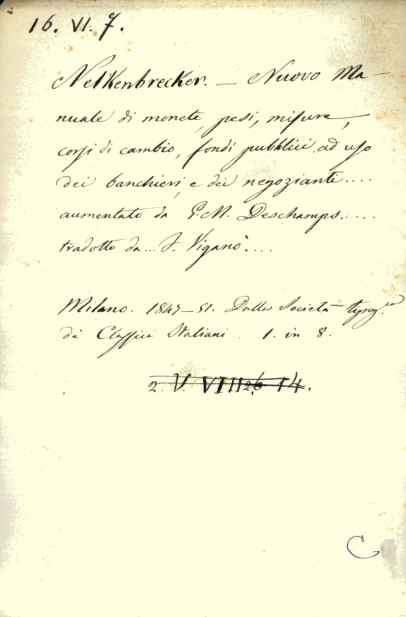 16. VI. 7.
Nelkenbrecker. — Nuovo Ma-
nuale di monete pesi, misure,
corsi di cambio, fondi pubblici, ad uso
dei banchieri, e dei negozianti....
aumentato da J. M. Deschamps.....
tradotto da... F. Viganò....
Milano. 1847-51. Dalla Società typog.
de' Classici Italiani. 1. in 8.
2. V. VIII 26 14.
C